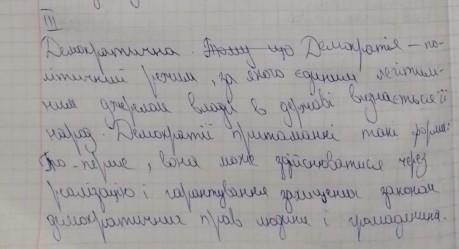 III
Демократична. Тому що Демократія – по-
літичний режим, за якого єдиним легітим-
ним джерелом влади в державі визнається її
народ. Демократії притаманні такі форми:
По-перше, вона може здійснюватися через
реалізацію і гарантування захищених законом
демократичних прав людини і громадянина.